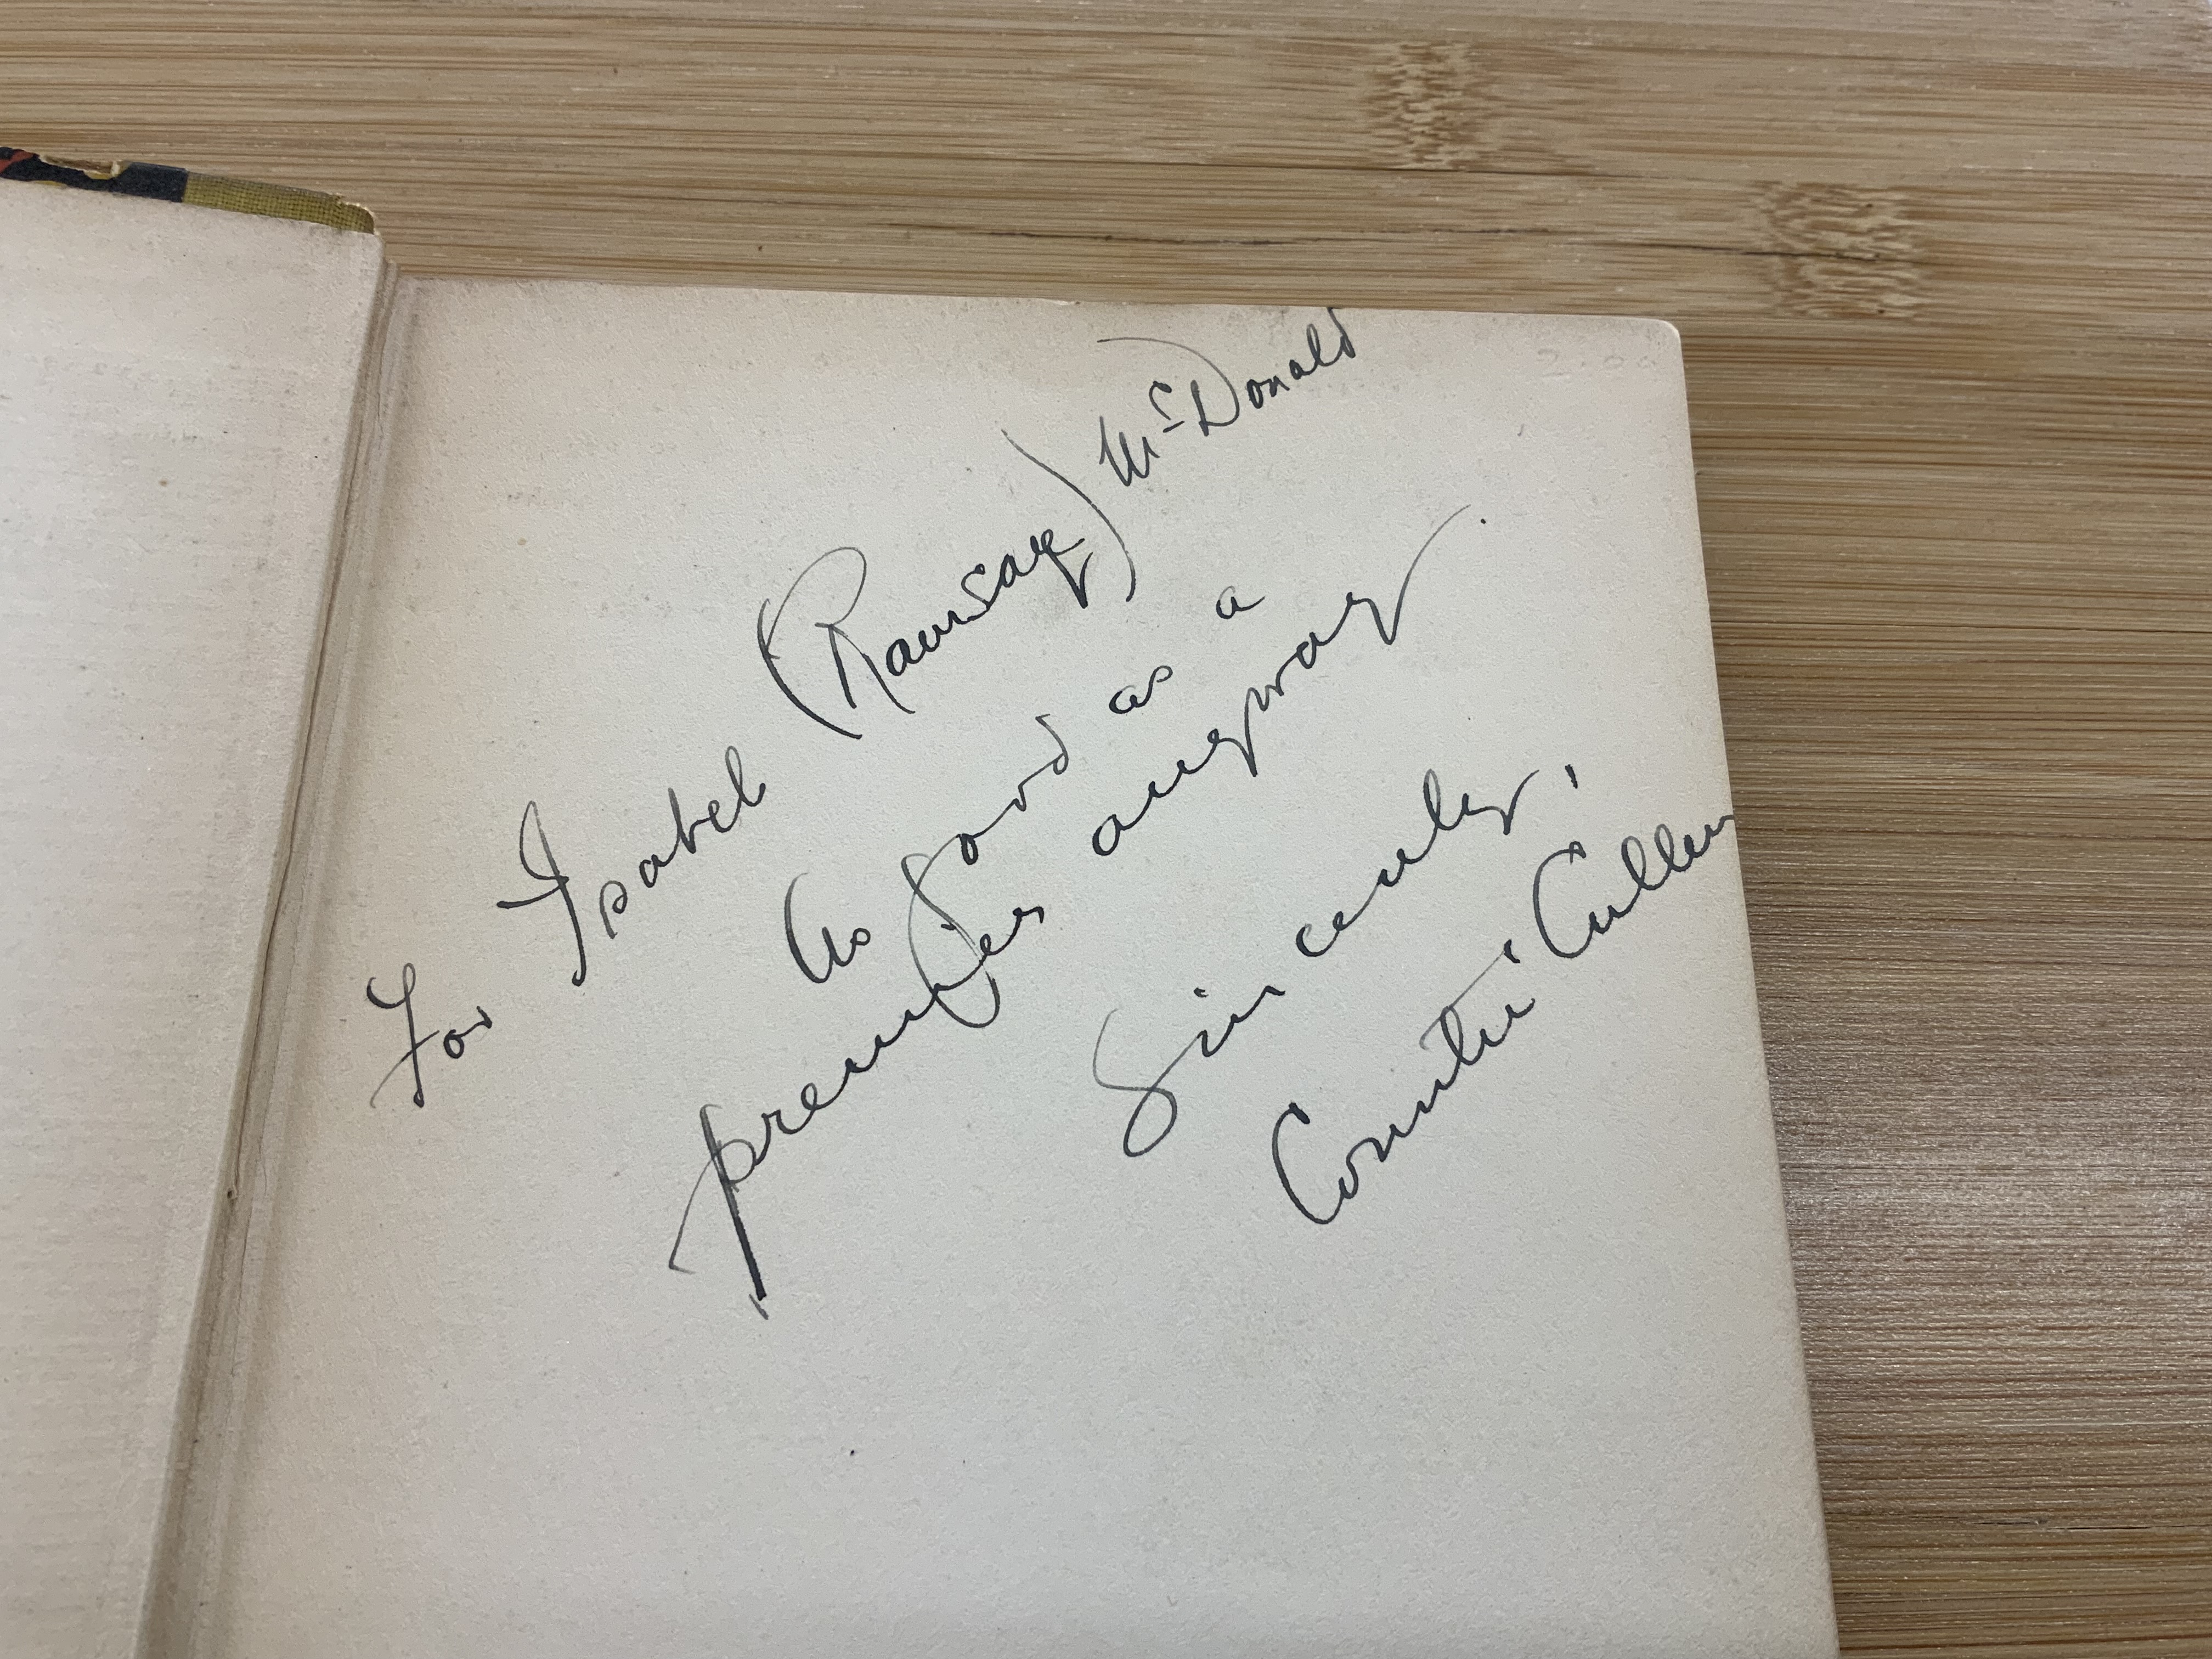 For Isabel (Ramsay) McDonald
As good as a
premier anyway.
Sincerely,
Countee Cullen